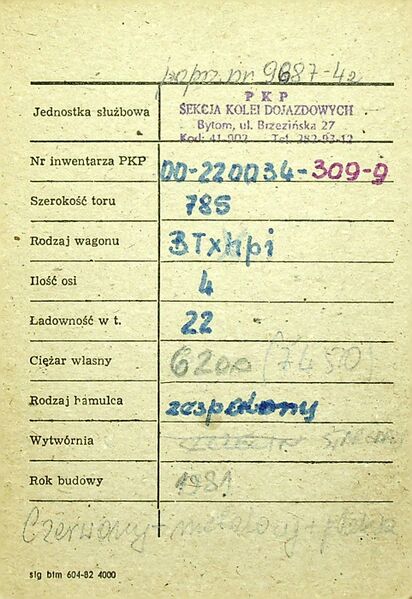 poprz. nr 9687-4z
Jednostka służbowa PKP
SEKCJA KOLEI DOJAZDOWYCH
Bytom, ul. Brzezińska 27
Kod: 41-902 Tel. 282-93-12
Nr inwentarza PKP 00-220034-309-9
Szerokość toru 785
Rodzaj wagonu 3TxHpi
Ilość osi 4
Ładowność w t. 22
Ciężar własny 6200 (7450)
Rodzaj hamulca zespolony
Wytwórnia
Rok budowy 1981
Czerwony + metalowy +
sig btm 604-82 4000